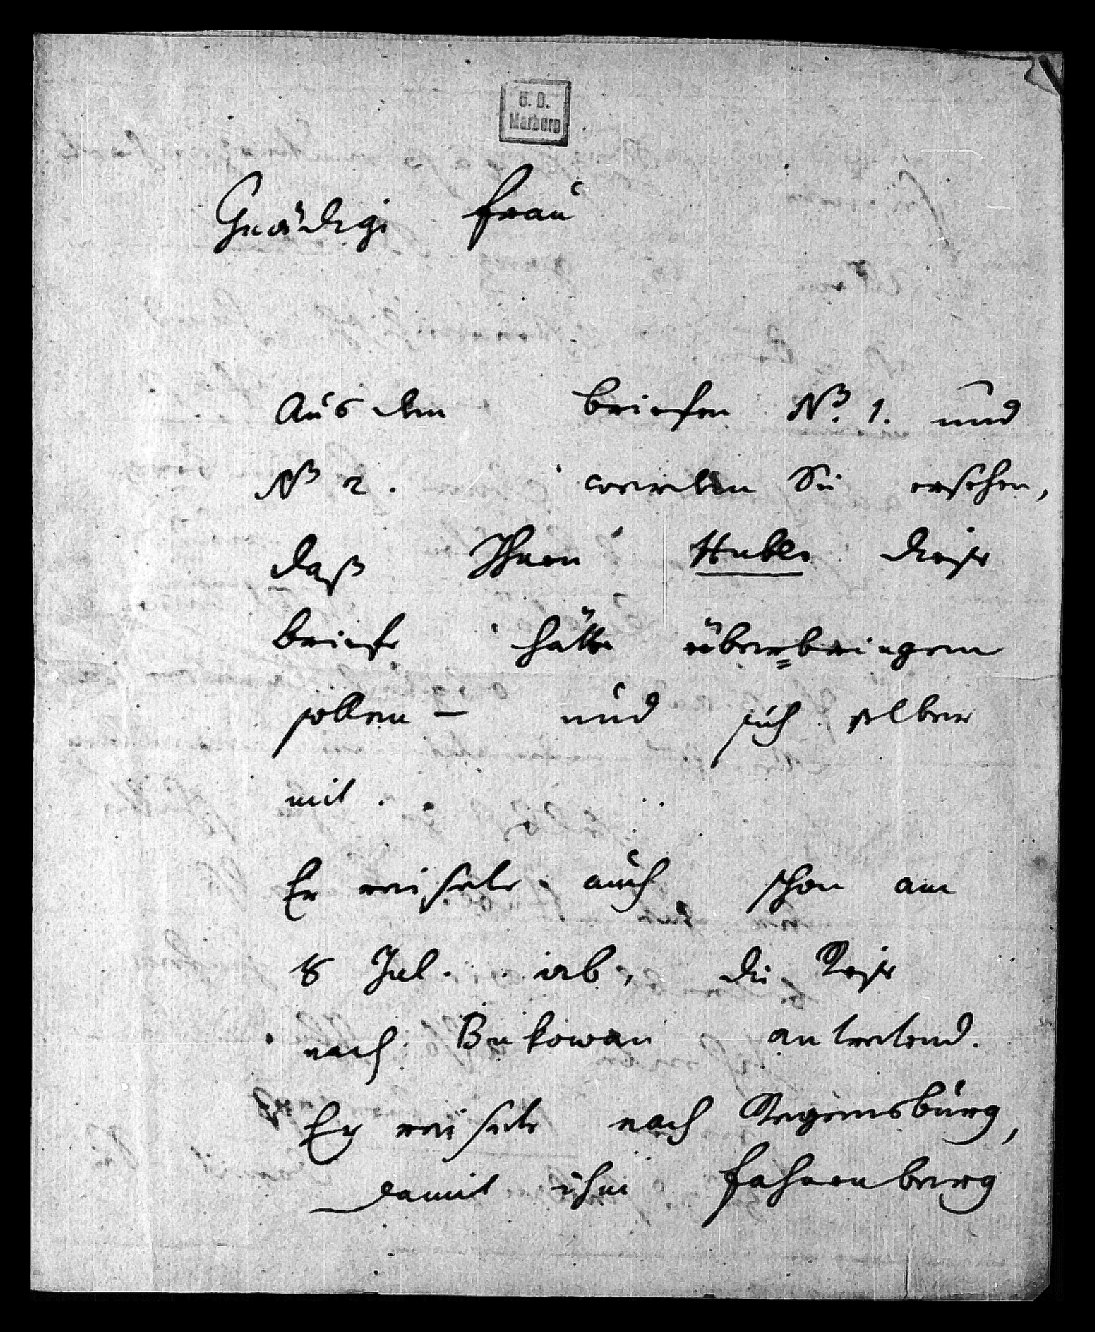 ö. D.
Marburg
Gnädige Frau
Aus den briefen No. 1. und
No 2. werden Sie ersehen,
daß Ihnen Huble diese
briefe hätte überbringen
sollen — und sich selber
mit.
Er reisete auch schon am
8 Jul. ab, die Reise
nach Bukowan antretend.
Er reisete nach Regensburg,
damit ihm Fahnenberg